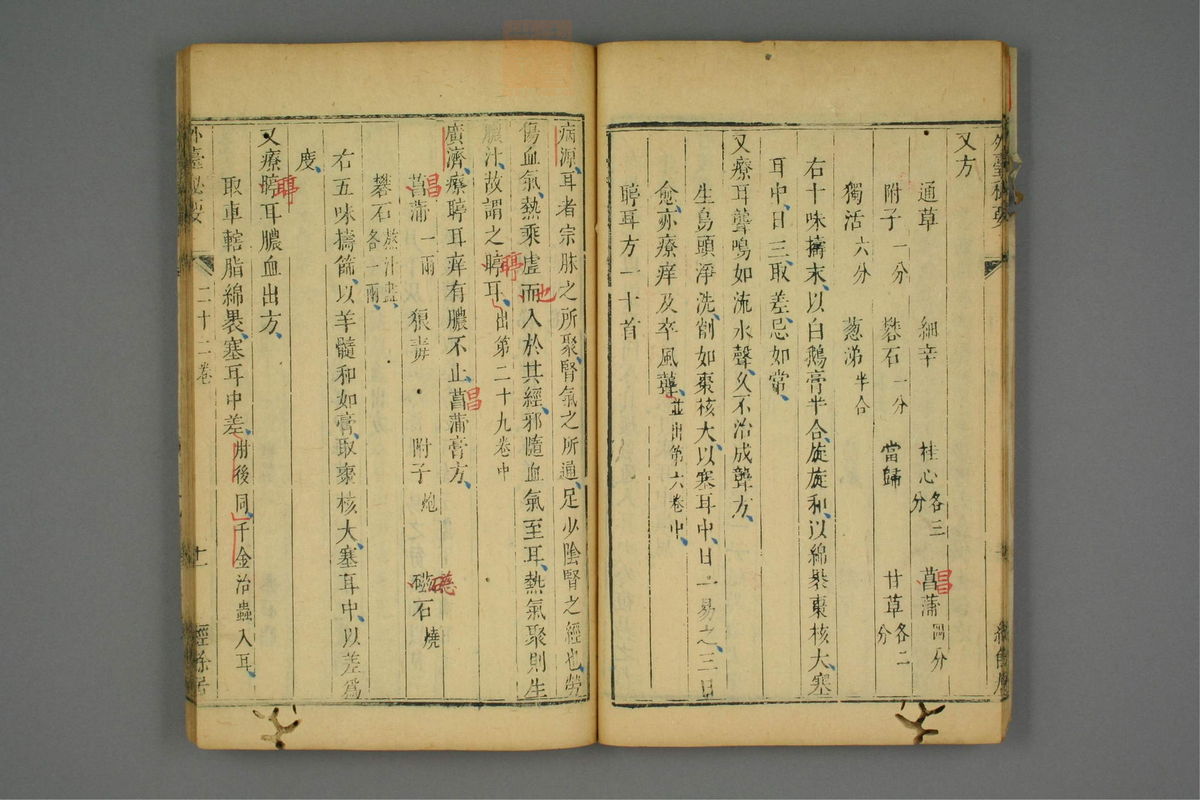 又方
通草 細辛 桂心各三分 菖蒲四分
附子一分 礬石一分 當歸 甘草各二分
獨活六分 葱涕半合
右十味擣末以白鵝膏半合旋旋和以綿褁棗核大塞
耳中日三取差忌如常
又療耳聾鳴如流水聲久不治成聾方
生烏頭淨洗削如棗核大以塞耳中日一易之三日
愈亦療痒及卒風聾並出第六卷中
聤耳方一十首
病源耳者宗脉之所聚腎氣之所通足少陰腎之經也勞
傷血氣熱乘虛而入於其經邪隨血氣至耳熱氣聚則生
膿汁故謂之聤耳出第二十九卷中
廣濟療聤耳痒有膿不止菖蒲膏方
菖蒲一兩 狼毒 附子炮 磁石燒
礬石蒸汁盡各一兩
右五味擣篩以羊髓和如膏取棗核大塞耳中以差爲
度
又療聤耳膿血出方
取車轄脂綿褁塞耳中差肘後同千金治蟲入耳
外臺秘要
二十二卷
十一
經餘居